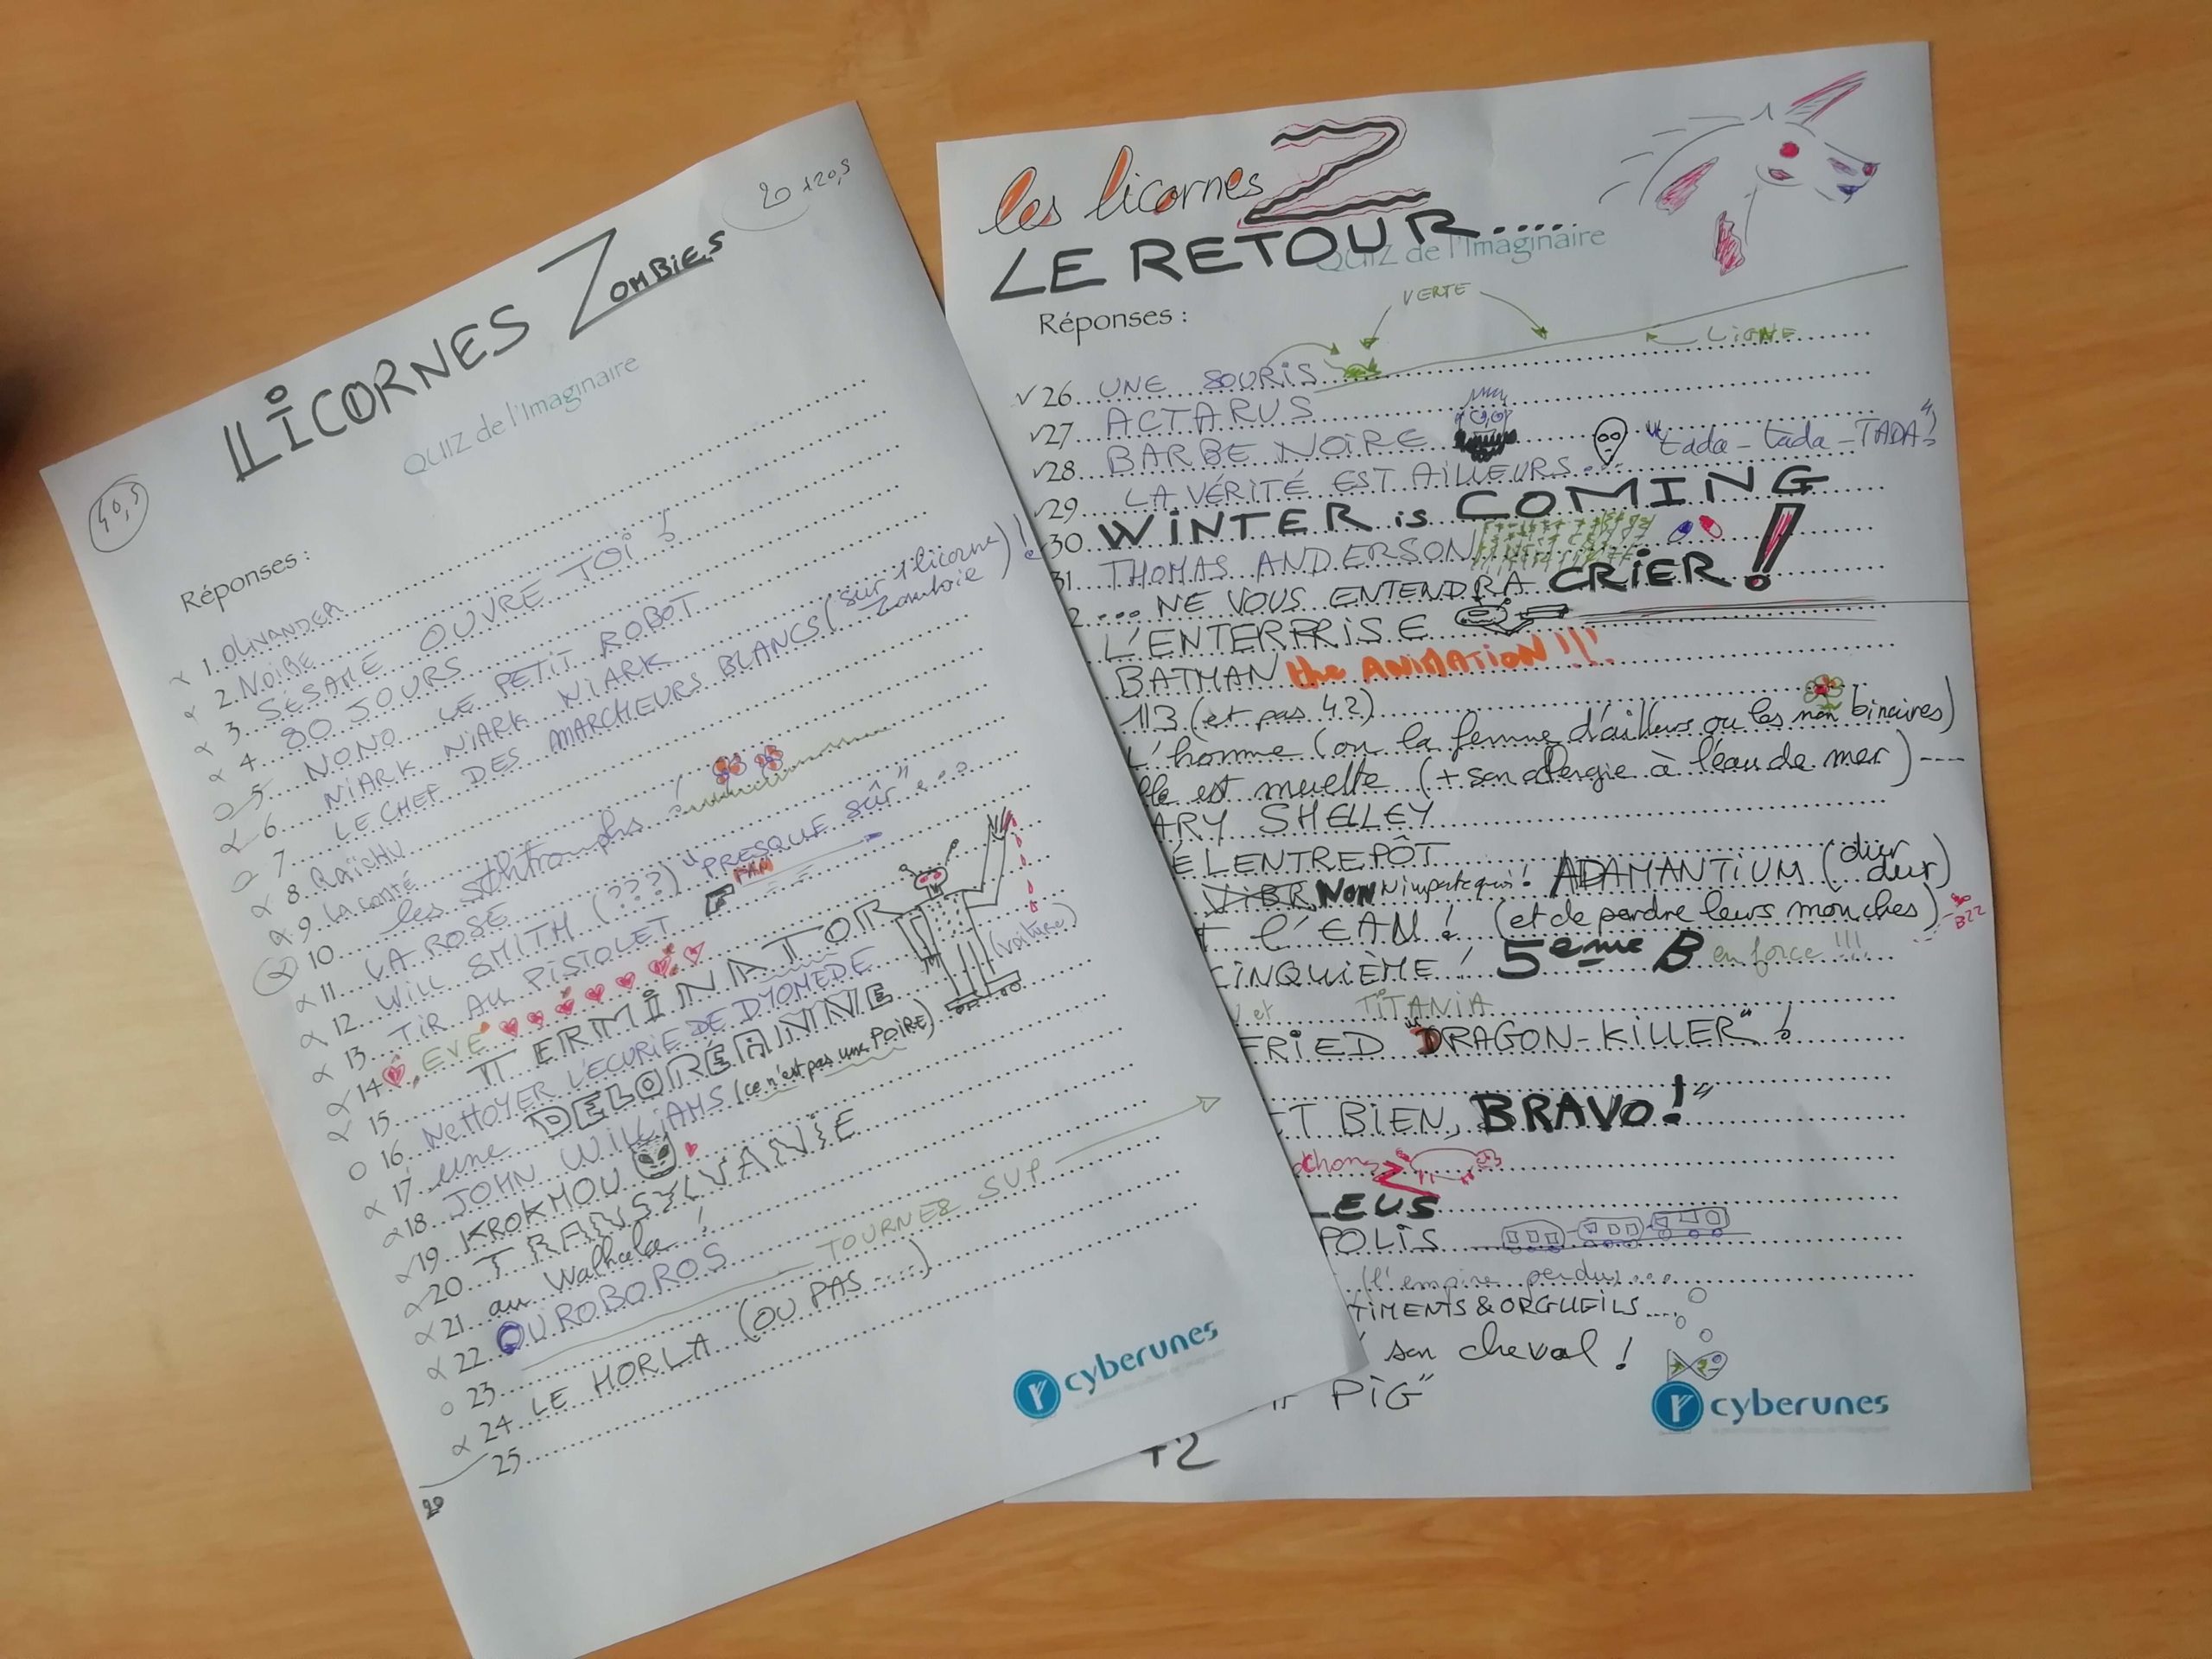 20 +20,5
LICORNES ZOMBIES
QUIZ de l'Imaginaire
40,5
Réponses :
1. OLIVANDER
2. NOIRE
3. SÉSAME OUVRE TOI !
4. 80 JOURS
5. NONO LE PETIT ROBOT
6. NIARK NIARK NIARK
7. LE CHEF DES MARCHEURS BLANCS (sur 1 licorne zombie) !
8. RAÏCHU
9. La santé
10. les schtroumphs !
11. LA ROSE
12. WILL SMITH (???) "PRESQUE SÛR"...
13. TIR AU PISTOLET
14. EVE
15. TERMINATOR
16. NETTOYER L'ECURIE DE DYOMEDE
17. une DELORÉANNE (voiture)
18. JOHN WILLIAMS (ce n'est pas une POIRE)
19. KROKMOU
20. TRANSYLVANIE
21. au Walhala !
22. OUROBOROS
23. TOURNER SUP
24. LE HORLA (OU PAS....)
25.
20
cyberunes
les licornes Z
LE RETOUR.....
QUIZ de l'Imaginaire
Réponses :
VERTE
LIGNE
26 UNE SOURIS
27 ACTARUS
28 BARBE NOIRE
29 LA VÉRITÉ EST AILLEURS... "tada - tada - TADA !"
30 WINTER is COMING
31 THOMAS ANDERSON
2 ... NE VOUS ENTENDRA CRIER !
L'ENTERPRISE
BATMAN the ANIMATION !!!
113 (et pas 42)
L'homme (ou la femme d'ailleurs ou les non binaires)
lle est muette (+ son allergie à l'eau de mer) ----
ARY SHELLEY
É L'ENTREPÔT
VIBR NON N'importe quoi ! ADAMANTIUM (dur dur)
T l'EAU ! (et de perdre leurs mouches) BZZ
CINQUIÈME ! 5ème B en force !!!
et TITANIA
FRIED "DRAGON-KILLER" !
T BIEN, BRAVO !"
chon
LEUS
POLIS
(l'empire perdu...
TIMENTS & ORGUEILS....
son cheval !
PIG"
+2
cyberunes